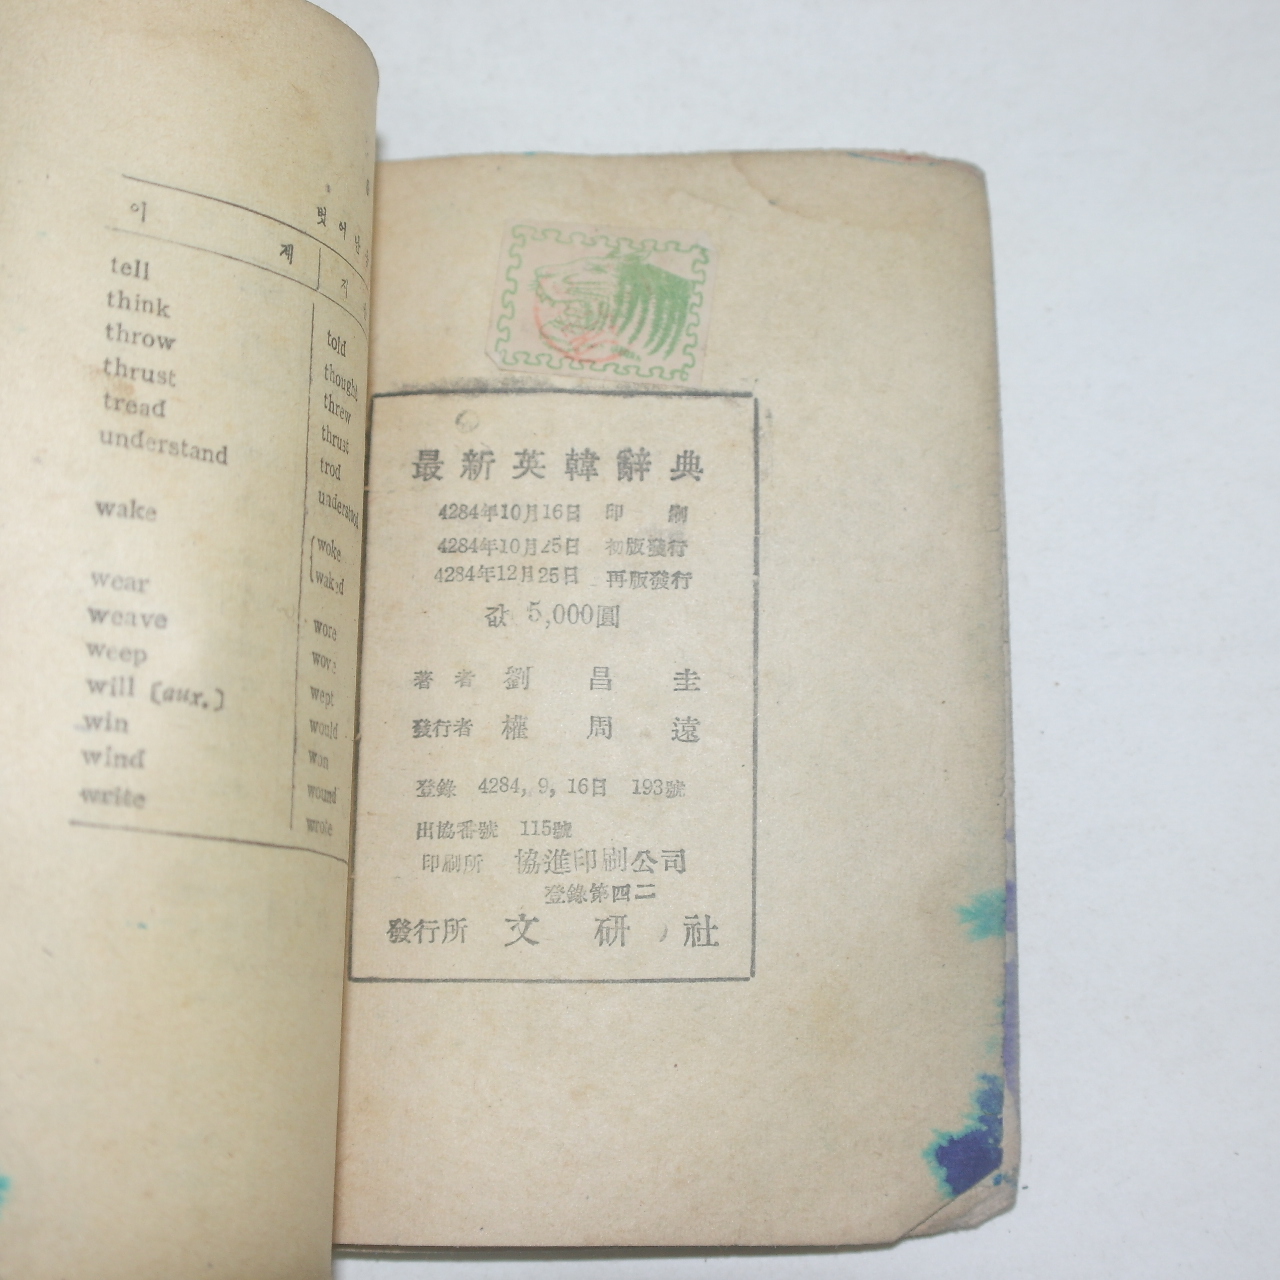 벗어난
이 제
tell told
think thought
throw threw
thrust thrust
tread trod
understand understood
wake woke
waked
wear wore
weave wove
weep wept
will (aux.) would
win won
wind wound
write wrote
最新英韓辭典
4284年10月16日 印 刷
4284年10月25日 初版發行
4284年12月25日 再版發行
값 5,000圓
著者 劉昌圭
發行者 權周遠
登錄 4284, 9, 16日 193號
出協番號 115號
印刷所 協進印刷公司
登錄第四二
發行所 文硏社